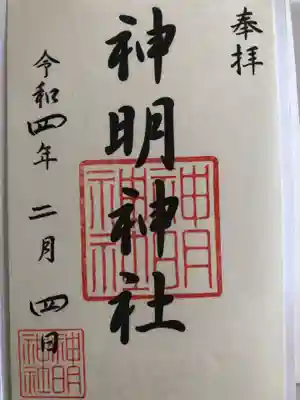 奉拝
神明神社
神明
神社
令和四年二月四日
神明
神社